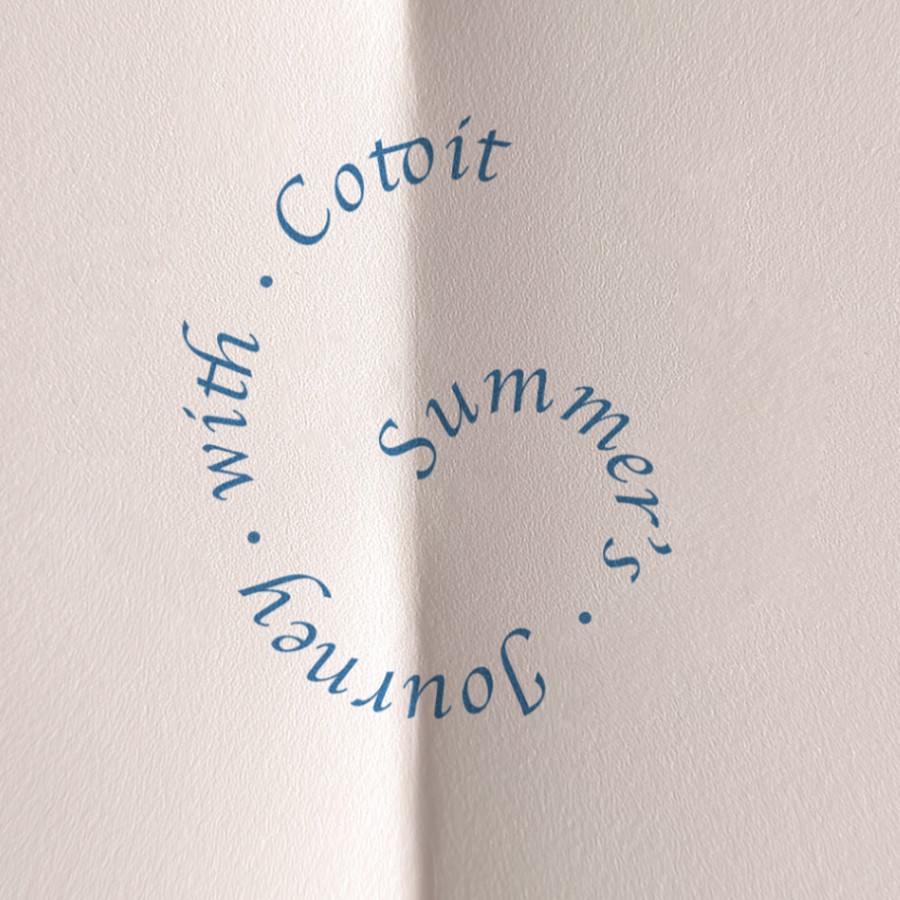 Summer's · Journey · with · Cotoit